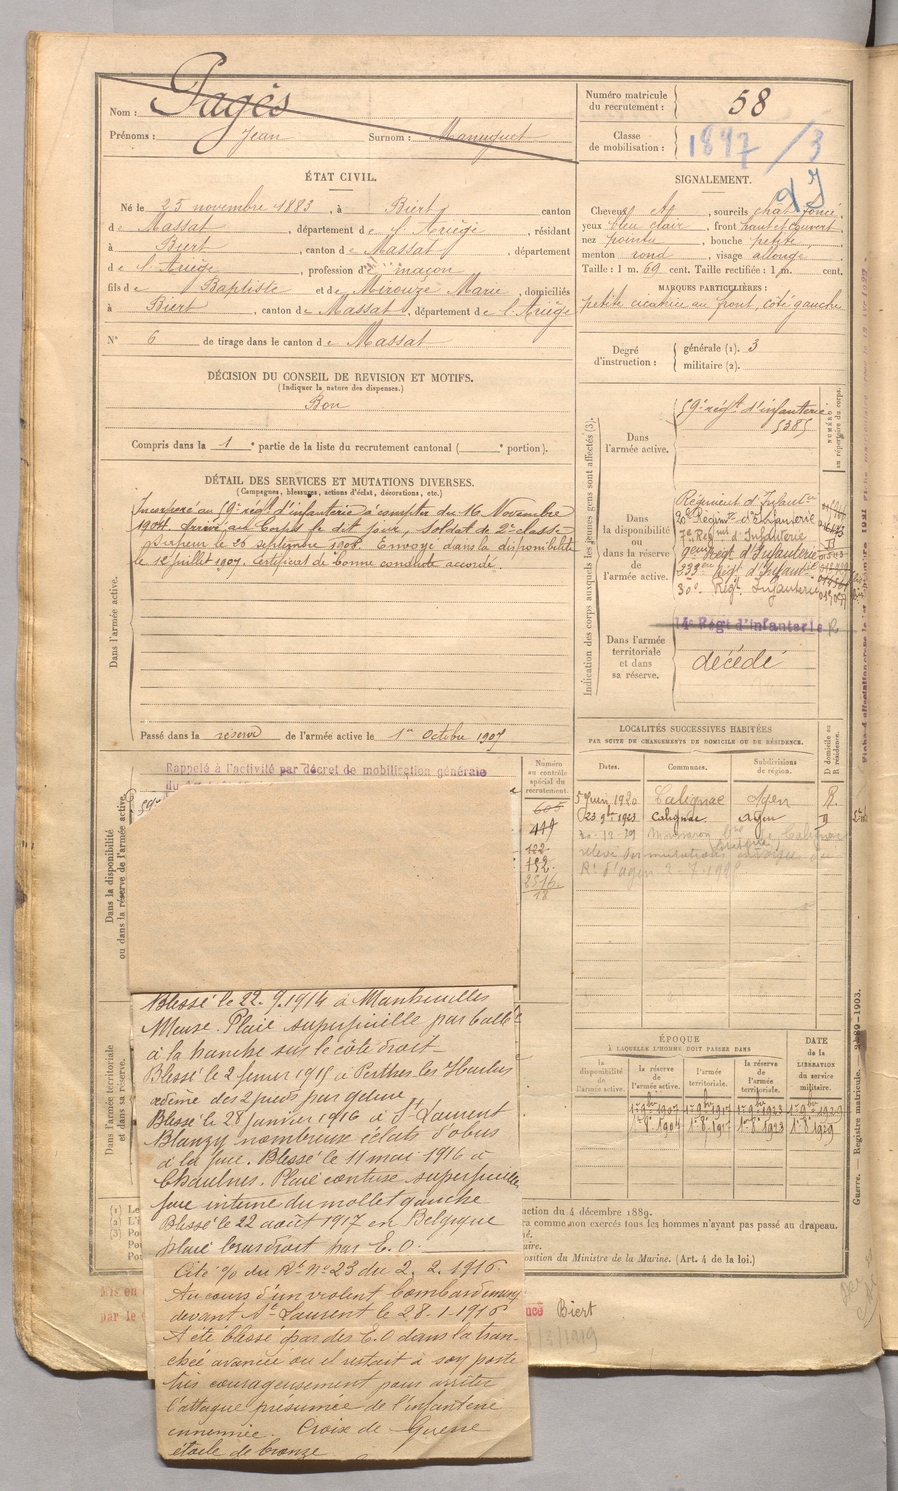 Nom : Pagès
Prénoms : Jean Surnom : Manuguet
Numéro matricule du recrutement : 58
Classe de mobilisation : 1897 / 3
ÉTAT CIVIL.
Né le 25 novembre 1883, à Biert, canton
de Massat, département de l'Ariège, résidant
à Biert, canton de Massat, département
de l'Ariège, profession de maçon
fils de Baptiste et de Mirouze Marie, domiciliés
à Biert, canton de Massat, département de l'Ariège
N° 6 de tirage dans le canton de Massat
SIGNALEMENT.
Cheveux, sourcils chât. foncé,
yeux bleu clair, front haut et couvert
nez pointu, bouche petite,
menton rond, visage allongé.
Taille : 1 m. 69 cent. Taille rectifiée : 1 m. cent.
MARQUES PARTICULIÈRES :
petite cicatrice au front, côté gauche
Degré d'instruction : générale (1). 3
militaire (2).
DÉCISION DU CONSEIL DE REVISION ET MOTIFS.
(Indiquer la nature des dispenses.)
Bon
Compris dans la 1e partie de la liste du recrutement cantonal ( e portion).
DÉTAIL DES SERVICES ET MUTATIONS DIVERSES.
(Campagnes, blessures, actions d'éclat, décorations, etc.)
Dans l'armée active.
Incorporé au 59e régt d'infanterie à compter du 16 Novembre
1904. Arrivé au Corps le dit jour, soldat de 2e classe.
le 25 septembre Envoyé dans la disponibilité
le 12 juillet 1907. Certificat de bonne conduite accordé.
Passé dans la réserve de l'armée active le 1er Octobre 1907
Indication des corps auxquels les jeunes gens sont affectés (3).
Dans l'armée active.
59e régt d'infanterie
5385
NUMÉRO au répertoire du corps.
Dans la disponibilité ou dans la réserve de l'armée active.
Régiment d'Infantrie
20e Régimt d'Infanterie
7e Régimt d'Infanterie
9eme Régt d'Infanterie
333eme Régt d'Infantrie
30e Régt Infanterie
14e Régt d'Infanterie R
Dans l'armée territoriale et dans sa réserve.
décédé
LOCALITÉS SUCCESSIVES HABITÉES
PAR SUITE DE CHANGEMENTS DE DOMICILE OU DE RÉSIDENCE.
Dates. Communes. Subdivisions de région. D domicile ou R résidence.
5 Juin 1920 Calignac Agen R.
23 9bre 1923 Calignac Agen D
30-12-29
Rt d'Agen
Dans la disponibilité ou dans la réserve de l'armée active.
Rappelé à l'activité par décret de mobilisation générale
Numéro au contrôle spécial du recrutement.
605
499
122
192
2516
18
Blessé le 22.9.1914 à Manheulles
Meuse. Plaie superficielle par balle
à la hanche sur le côté droit
Blessé le 2 février 1915 à Perthes les Hurlus
œdème des 2 pieds par gelure
Blessé le 28 janvier 1916 à St Laurent
Blangy nombreux éclats d'obus
à la face. Blessé le 11 mai 1916 à
Plaie contuse superficielle
face interne du mollet gauche
Blessé le 22 août 1917 en Belgique
plaie bras droit par E. O.
Cité o/o du Rt No 23 du 2.2.1916
Au cours d'un violent bombardement
devant St Laurent le 28-1-1916
A été blessé par des E.O dans la tran-
chée avancée où il restait à son poste
très courageusement pour arrêter
l'attaque présumée de l'infanterie
ennemie. Croix de Guerre
étoile de bronze
Dans l'armée territoriale et dans sa réserve.
ÉPOQUE
À LAQUELLE L'HOMME DOIT PASSER DANS
la disponibilité de l'armée active. la réserve de l'armée active. l'armée territoriale. la réserve de l'armée territoriale. DATE de la LIBÉRATION du service militaire.
1er 9bre 1907 1er 9bre 1917 1er 9bre 1923 1er 9bre 1929
1er 8e 1907 1er 8e 1917 1er 8e 1923 1er 8e 1929
uction du 4 décembre 1889.
ra comme non exercés tous les hommes n'ayant pas passé au drapeau.
position du Ministre de la Marine. (Art. 4 de la loi.)
Biert
/3/1919
Guerre. — Registre matricule. 89–1903.